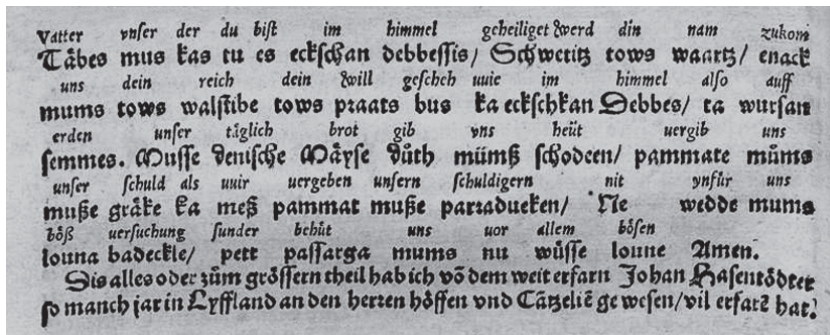 Vatter vnser der du bist im himmel geheiliget werd din nam zukom
Täbes mus kas tu es eckschan debbessis/ Schwetitz tows waartz/ enack
uns dein reich dein will gescheh uuie im himmel also auff
mums tows walstibe tows praats bus ka eckschkan Debbes/ ta wursan
erden unser täglich brot gib vns heüt uergib uns
semmes. Musse denische Mäyse důth mümß schodeen/ pammate můms
unser schuld als uuir uergeben unsern schuldigern nit ynfür uns
muße gräke ka meß pammat muße parradueken/ Ne wedde mums
böß uersuchung sunder behüt uns uor allem bösen
louna badeckle/ pett passarga mums nu wüsse loune Amen.
Dis alles oder zům grössern theil hab ich võ dem weit erfarn Johan Hasentödter
so manch jar in Lyffland an den herren höffen vnd Cätzelië gewesen/ vil erfarẽ hat.